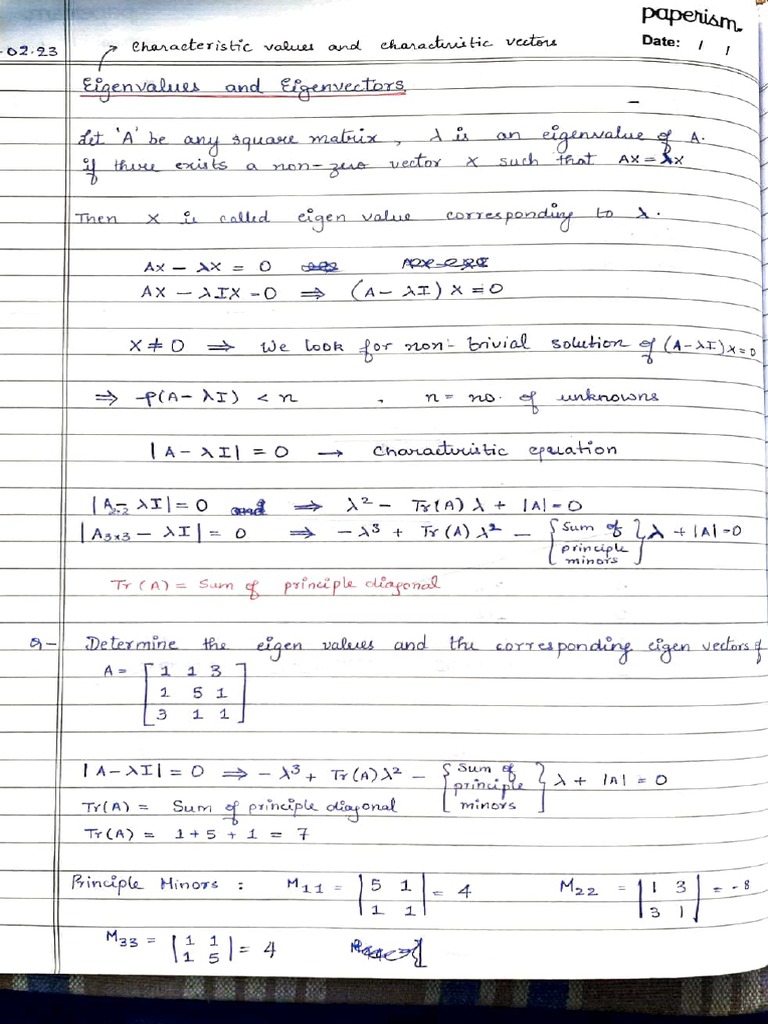 paperism.
-02.23
Characteristic values and characteristic vectors
Date: / /
Eigenvalues and Eigenvectors
Let 'A' be any square matrix, λ is an eigenvalue of A.
if there exists a non-zero vector X such that AX = λX
Then X is called eigen value corresponding to λ.
AX - λX = 0
AX - λIX = 0 ⇒ (A - λI) X = 0
X ≠ 0 ⇒ We look for non-trivial solution of (A-λI)X=0
⇒ ρ(A - λI) < n , n = no. of unknowns
|A - λI| = 0 → Characteristic equation
|A2×2 - λI| = 0 ⇒ λ² - Tr(A) λ + |A| = 0
|A3×3 - λI| = 0 ⇒ -λ³ + Tr(A) λ² - {Sum of principle minors} λ + |A| = 0
Tr(A) = Sum of principle diagonal
Q- Determine the eigen values and the corresponding eigen vectors of
A = [1 1 3
1 5 1
3 1 1]
|A - λI| = 0 ⇒ -λ³ + Tr(A)λ² - {Sum of principle minors} λ + |A| = 0
Tr(A) = Sum of principle diagonal
Tr(A) = 1 + 5 + 1 = 7
Principle Minors : M11 = |5 1 1 1| = 4 M22 = |1 3 3 1| = -8
M33 = |1 1 1 5| = 4